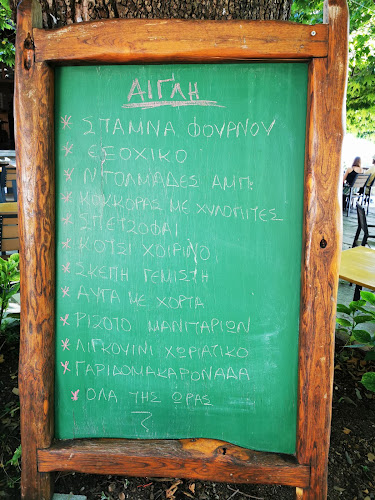 ΑΙΓΛΗ
* ΣΤΑΜΝΑ ΦΟΥΡΝΟΥ
* ΕΞΟΧΙΚΟ
* ΝΤΟΛΜΑΔΕΣ ΑΜΠ.
* ΚΟΚΚΟΡΑΣ ΜΕ ΧΥΛΟΠΙΤΕΣ
* ΣΠΕΤΣΟΦΑΙ
* ΚΟΤΣΙ ΧΟΙΡΙΝΟ
* ΣΚΕΠΗ ΓΕΜΙΣΤΗ
* ΑΥΓΑ ΜΕ ΧΟΡΤΑ
* ΡΙΖΟΤΟ ΜΑΝΙΤΑΡΙΩΝ
* ΛΙΓΚΟΥΙΝΙ ΧΩΡΙΑΤΙΚΟ
* ΓΑΡΙΔΟΜΑΚΑΡΟΝΑΔΑ
* ΟΛΑ ΤΗΣ ΩΡΑΣ